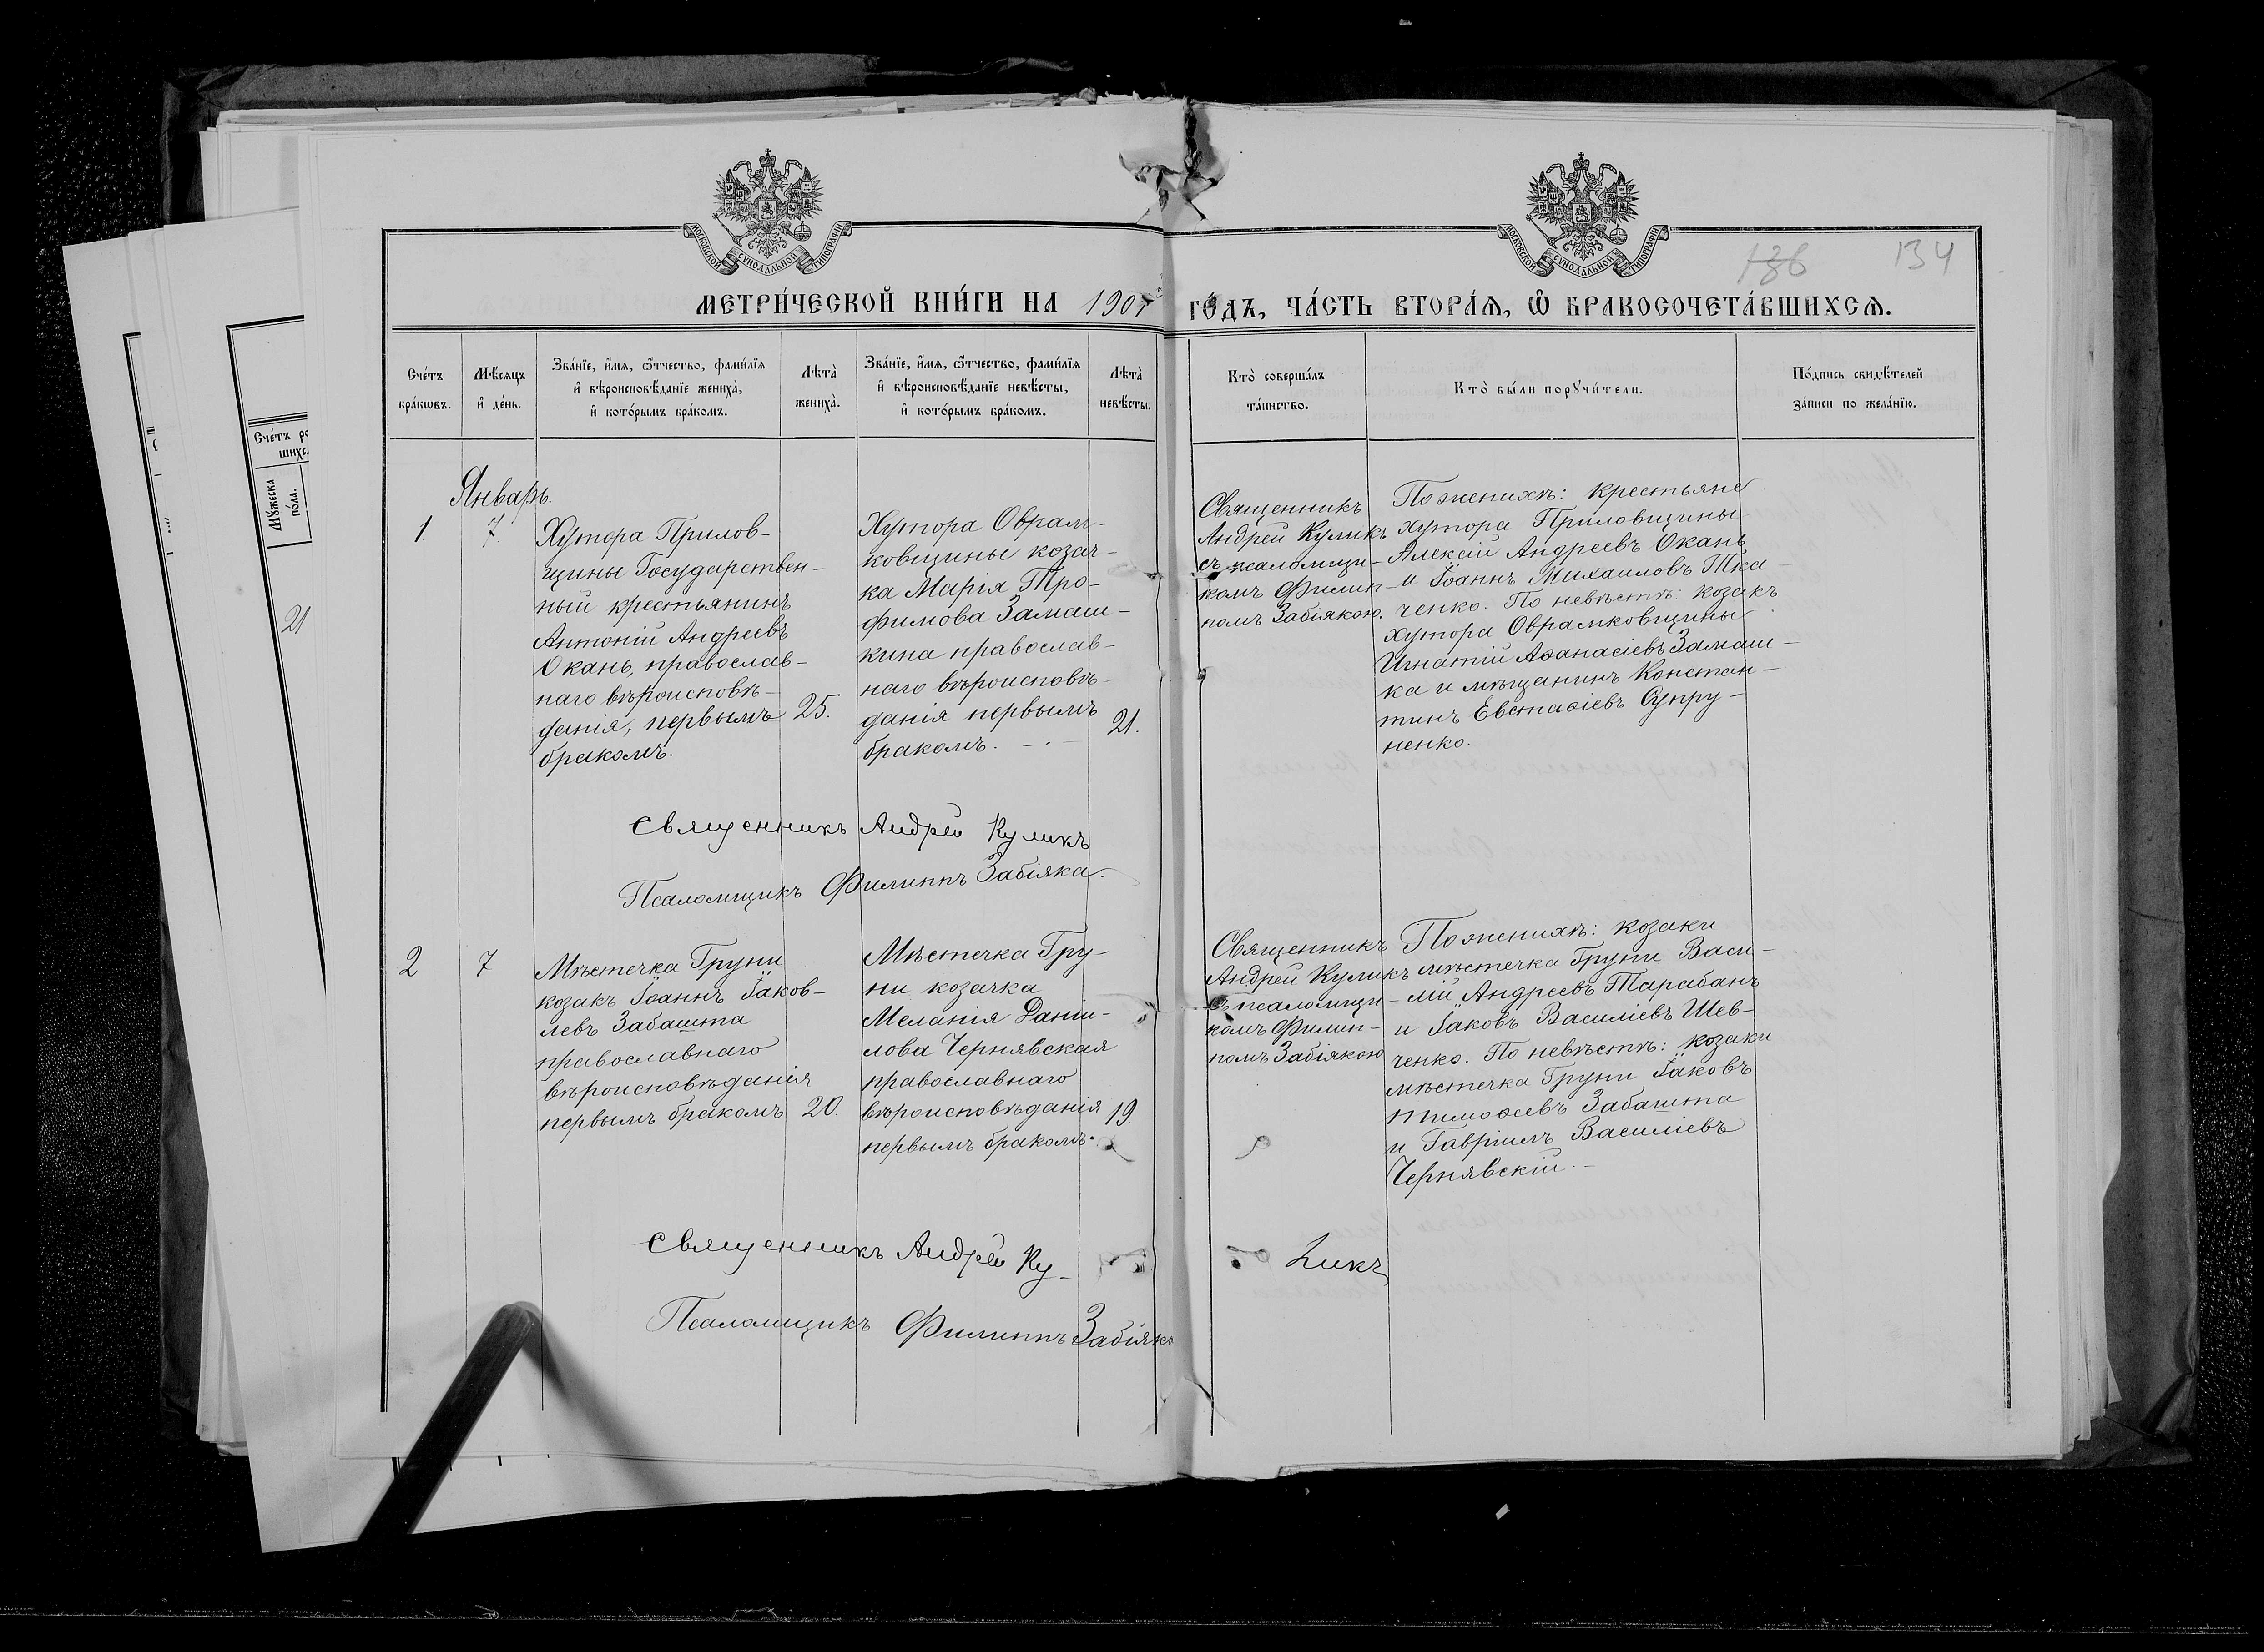 МОСКОВСКОЙ СѴНОДАЛЬНОЙ ТИПОГРАФІИ
МОСКОВСКОЙ СѴНОДАЛЬНОЙ ТИПОГРАФІИ
134
МЕТРИ́ЧЕСКОЙ КНИ́ГИ НА 1907 ГО́ДЪ, ЧА́СТЬ ВТОРА́Ѧ, Ѽ БРАКОСОЧЕТА́ВШИХСѦ.
Сче́тъ
бра́кѡвъ.
Мѣ́сѧцъ
и҆ де́нь.
Зва́нїе, и҆́мѧ, ѻ҆́тчество, фами́лїѧ
и҆ вѣроисповѣ́данїе жениха̀,
и҆ кото́рымъ бра́комъ.
Лѣ́та̀
жениха̀.
Зва́нїе, и҆́мѧ, ѻ҆́тчество, фами́лїѧ
и҆ вѣроисповѣ́данїе невѣ́сты,
и҆ кото́рымъ бра́комъ.
Лѣ́та̀
невѣ́сты.
Кто̀ соверша́лъ
та́инство.
Кто̀ бы́ли порꙋчи́тели.
По́дпись свидѣ́телей
за́писи по жела́нїю.
Январь.
1
7.
Хутора Прилов-
щины Государствен-
ный крестьянинъ
Антоній Андреевъ
Окань, православ-
наго вѣроисповѣ-
данія, первымъ
бракомъ.
25.
Хутора Оврам-
ковщины козач-
ка Марія Тро-
фимова Замаш-
кина православ-
наго вѣроисповѣ-
данія первымъ
бракомъ. -.-
21.
Священникъ
Андрей Куликъ
съ псаломщи-
комъ Филип-
помъ Забіякою.
По женихѣ: крестьяне
хутора Приловщины
Алексій Андреевъ Окань
и Іоаннъ Михаиловъ Тка-
ченко. По невѣстѣ: козакъ
хутора Оврамковщины
Игнатій Аѳанасіевъ Замаш-
ка и мѣщанинъ Констан-
тинъ Евстаѳіевъ Супру-
ненко.
Священникъ Андрей Куликъ
Псаломщикъ Филиппъ Забіяка.
2
7
Мѣстечка Груни
козакъ Іоаннъ Іаков-
левъ Забашта
православнаго
вѣроисповѣданія
первымъ бракомъ
20.
Мѣстечка Гру-
ни козачка
Меланія Даніи-
лова Чернявская
православнаго
вѣроисповѣданія
первымъ бракомъ.
19.
Священникъ
Андрей Куликъ
съ псаломщи-
комъ Филип-
помъ Забіякою
По женихѣ: козаки
мѣстечка Груни Васи-
лій Андреевъ Тарабанъ
и Іаковъ Василіевъ Шев-
ченко. По невѣстѣ: козаки
мѣстечка Груни Іаковъ
Тимоѳеевъ Забашта
и Гавріилъ Василіевъ
Чернявскій.-
Священникъ Андрей Ку-
ликъ
Псаломщикъ Филиппъ Забіяка
Мꙋ́жеска
по́ла.
21